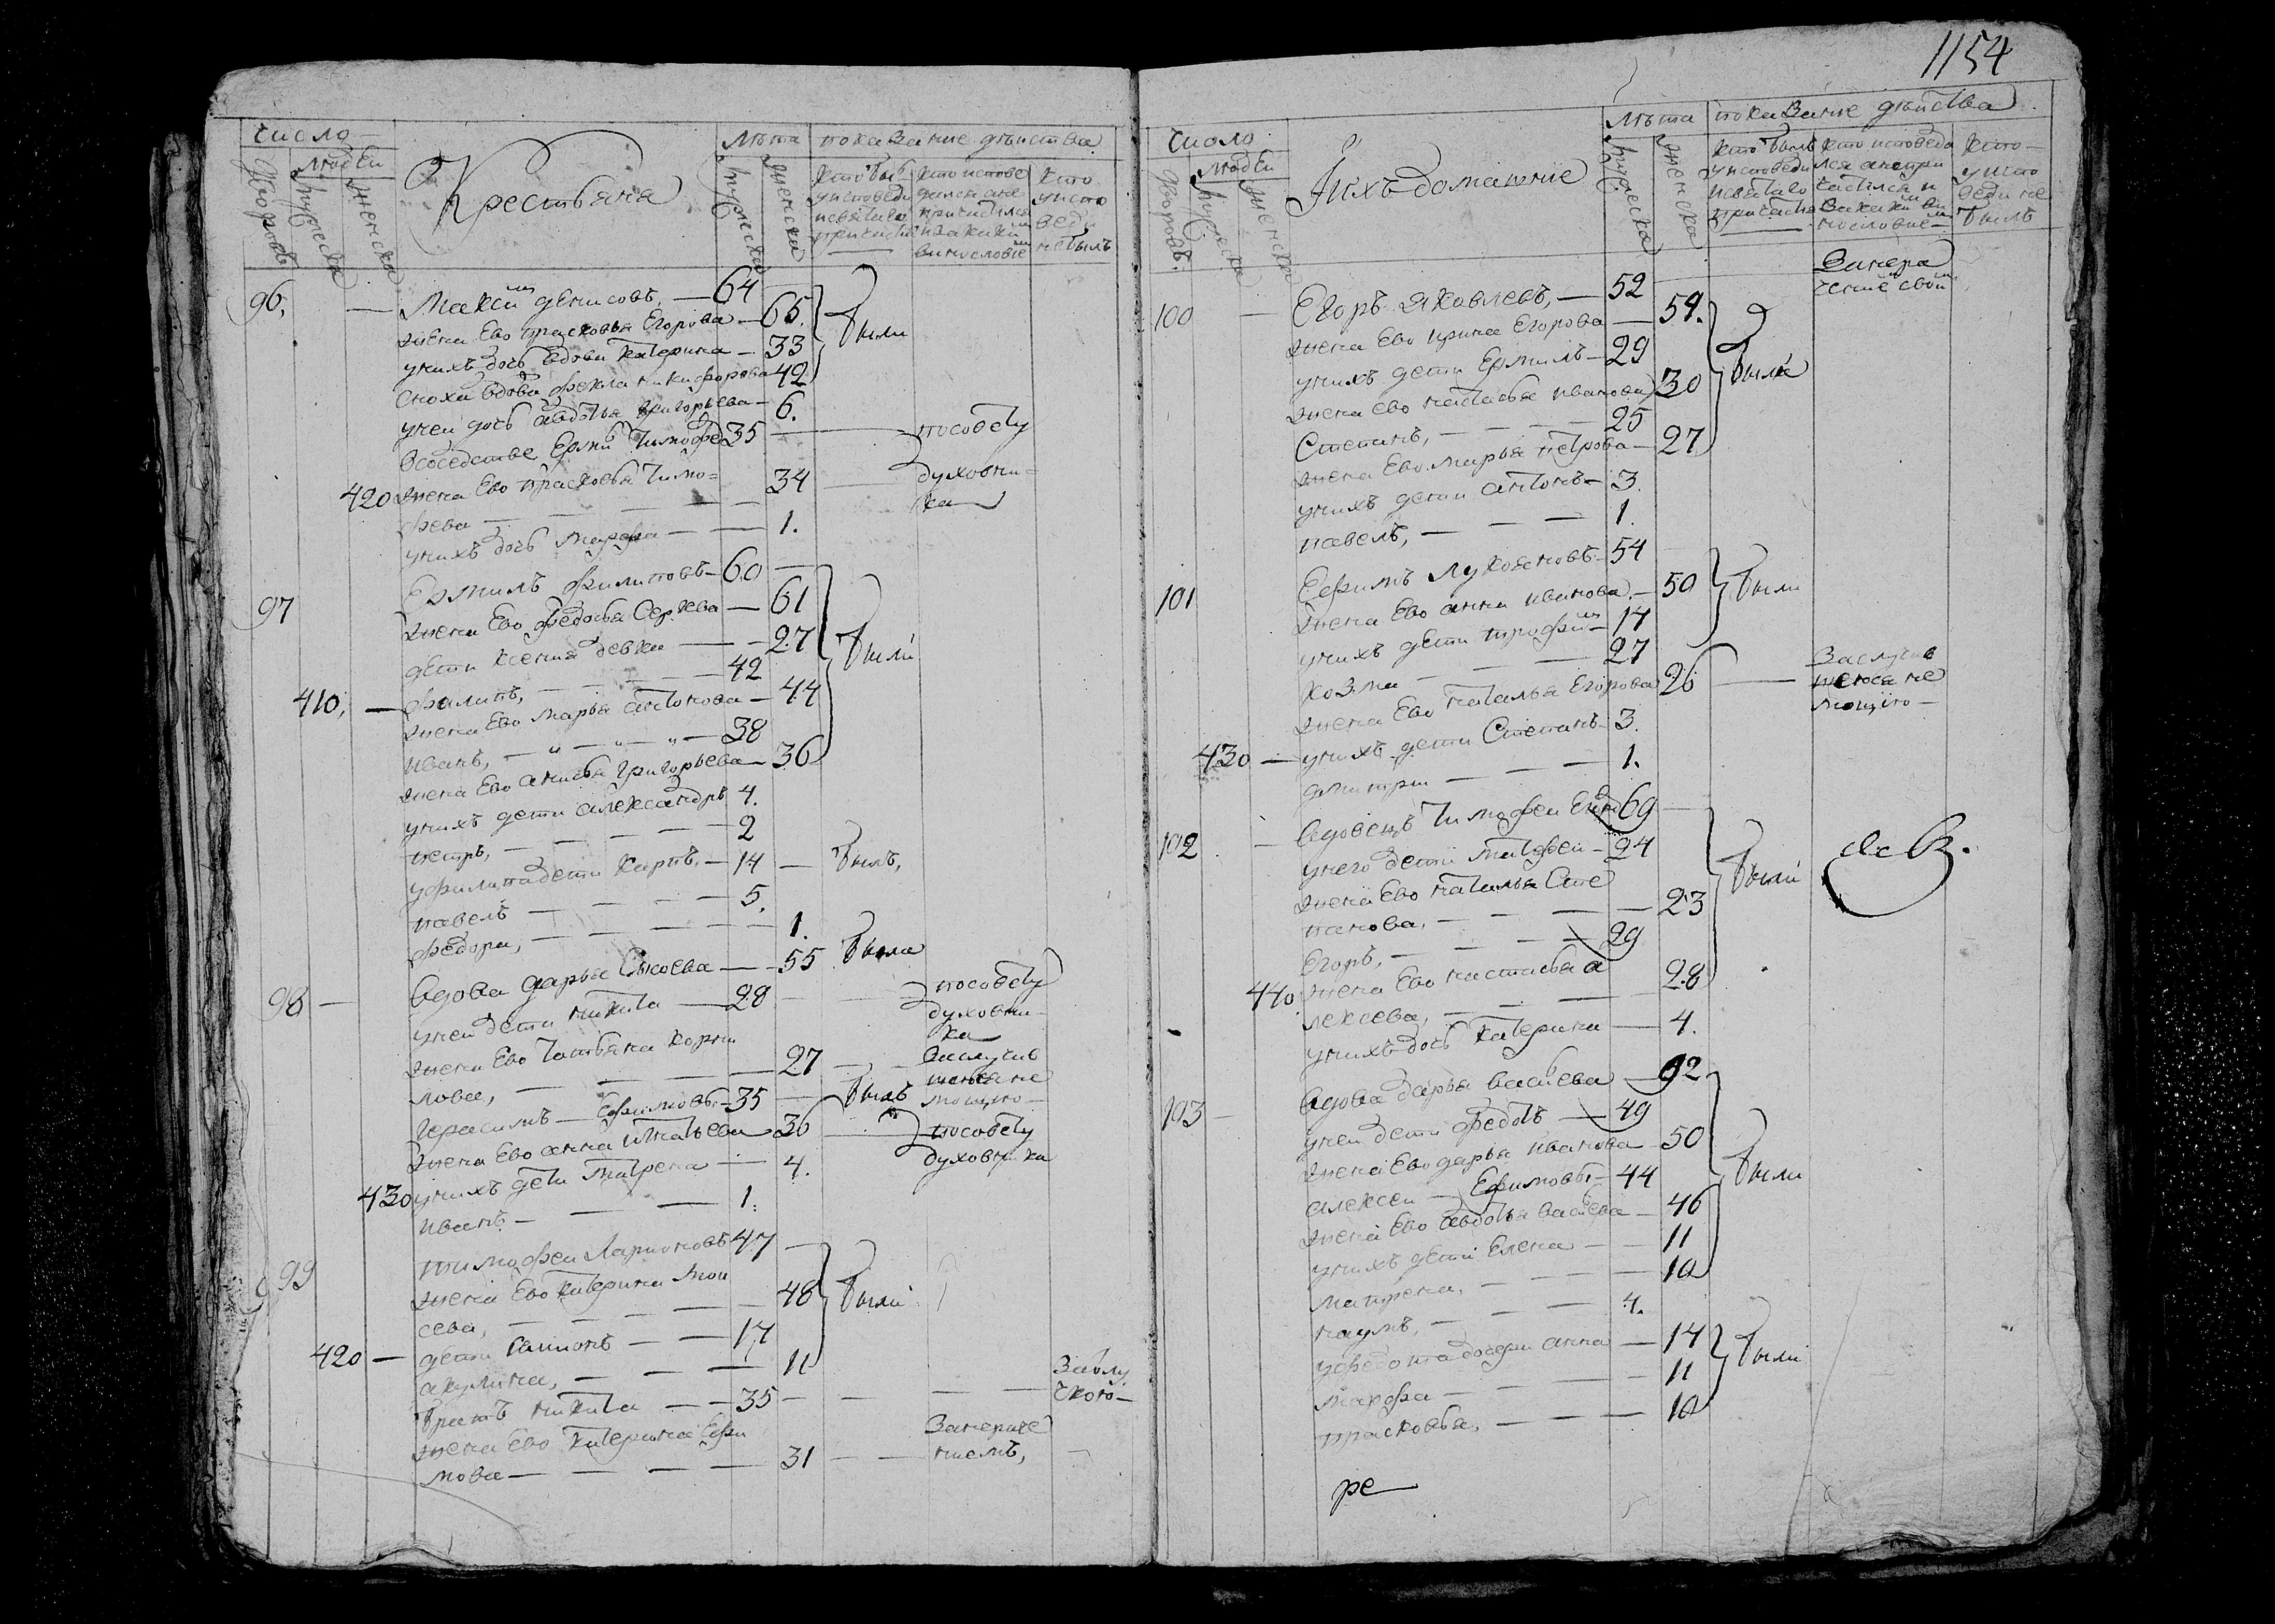 1154
число
людей
дворовъ
мужеска
женска
Крестьяня
лѣта
мужеска
женска
показание дѣйства
кто был у исповеди и святаго причастия
кто исповедался а не причастился и за каким винословием
кто у исповеди не былъ
96, — Максим денисовъ, — 64
жена Ево прасковья Егорова — 65. были
у нихъ дочь вдова катерина — 33
сноха вдова фекла никифорова 42
у неи дочь авдотья григорьева — 6.
в соседстве Ермиѣ Тимофе 35 — по совету
420 жена Ево прасковья Тимо= 34 — духовни=
фева — ка
у нихъ дочь марфа — 1.
97 Ермилъ филиповъ — 60
жена Ево федосья Сергева — 61
дети ксения девка — 27 были
410, — филипъ, — 42
жена Ево марья антонова — 44
иванъ, — 38
жена Ево анисья григорьева — 36
у нихъ дети александръ 4.
петръ, — 2
у филипа дети карпъ, — 14 — былъ,
павелъ — 5.
федора, — 1.
98 — вдова дарья — 55 была
у неи дети никита — 28 — по совету духовника
жена Ево Татьяна корни
лова, — 27 — за случив шемся не мощию
герасимъ — Ефимовъ — 35 — былъ
жена Ево анна игнатьева 36 — по совету
430 у нихъ дети матрена — 4. духовника
иванъ — 1.
99 тимофеи Ларионовъ 47
жена Ево катерина мои
сева, — 48 были
420 — дети Самионъ — 17
акулина, — 11
братъ никита — 35 — за отлучкою
жена Ево катерина Ефи
мова — 31 — за нерачением,
число
людей
дворовъ.
мужеска
женска
И ихъ домашние
лѣта
мужеска
женска
показание дѣйства
кто былъ у исповеди и святаго причастия
кто исповедался а не причастился и за каким винословием
кто у исповеди не былъ
100 — Егоръ Яковлевъ, — 52 — За нерачение свои
жена Ево ирина Егорова — 54.
у нихъ дети Ермилъ — 29
жена ево настасья иванова 30 были
Степанъ, — 25
жена Ево марья петрова — 27
у нихъ дети антонъ — 3.
павелъ, — 1.
101 Ефимъ Лукояновъ 54
жена Ево анна иванова — 50 были
у нихъ дети трофим — 14
козма — 27
жена Ево наталья Егорова 26 — за случив шемся не мощию —
430 — у нихъ дети Степанъ 3.
дмитри — 1.
102 — вдовецъ Тимофеи 69
у него дети матфеи — 24
жена Ево наталья Сте
панова, — 23 были
Егоръ, — 29
440 жена Ево настасья а
лексева, — 28
у нихъ дочь катерина — 4.
103 — вдова дарья васиева — 92
у неи дети федотъ — 49
жена Ево дарья иванова — 50
алексеи — Ефимовы — 44 были
жена Ево авдотья васиева — 46
у нихъ дети Елена — 11
матрена, — 10
наумъ, — 4.
у федота дочери анна — 14
марфа — 11 были
прасковья, — 10
ре